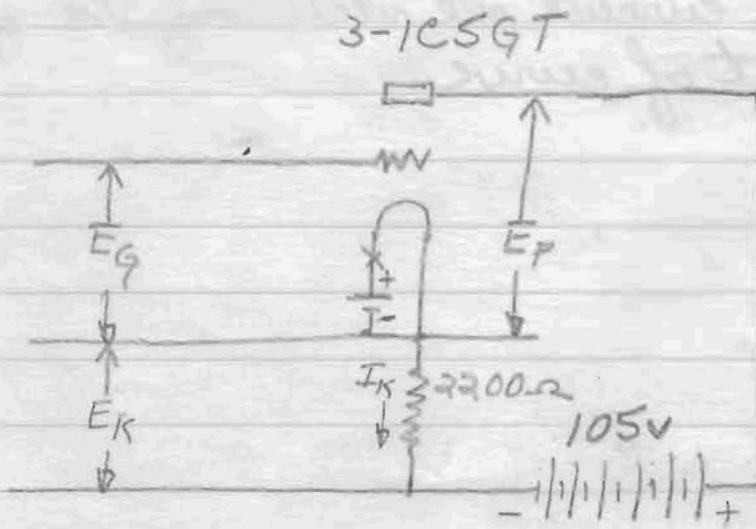 3-1C5GT
E_G
E_P
+
-
I_K
2200Ω
E_K
105v
- +